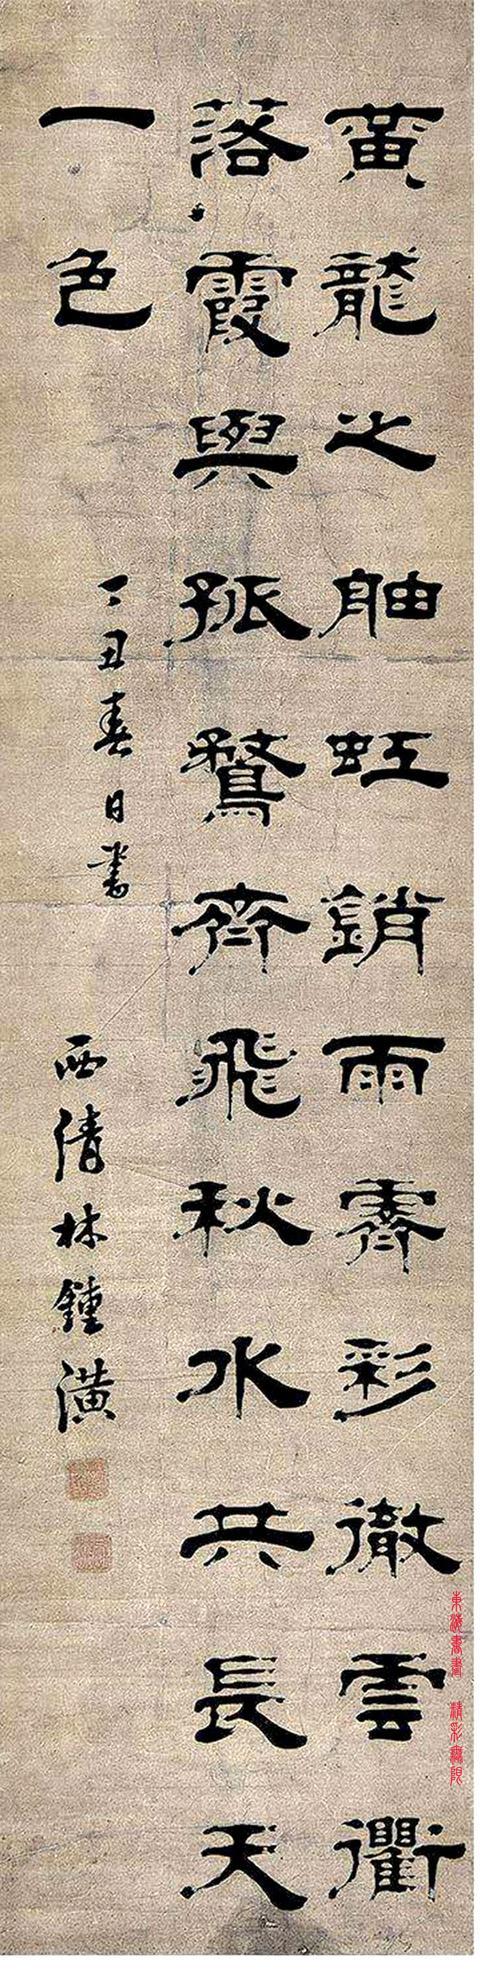 黃龍之舳虹銷雨霽彩徹雲衢
落霞與孤鶩齊飛秋水共長天
一色
丁丑春日書
西清林鍾潢
東海書畫 精彩無限